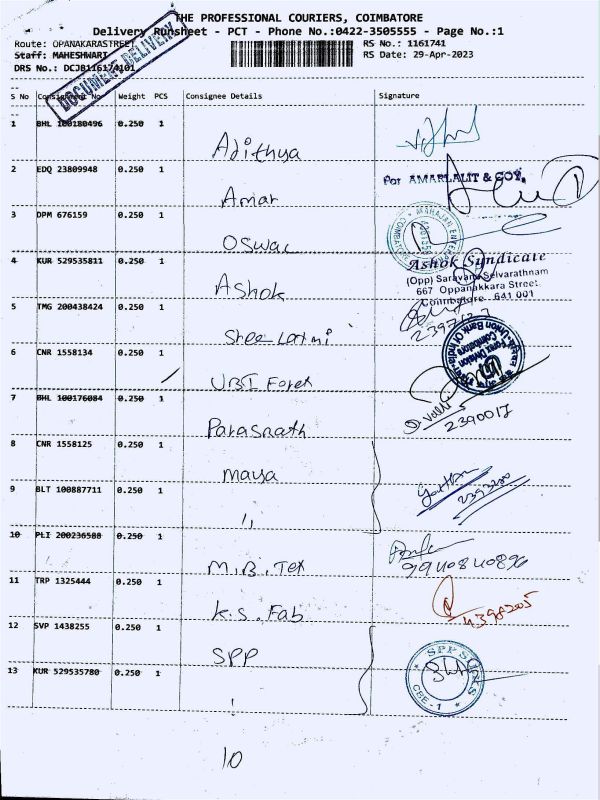 THE PROFESSIONAL COURIERS, COIMBATORE
Delivery Runsheet - PCT - Phone No.:0422-3505555 - Page No.:1
Route: OPANAKARASTREET RS No.: 1161741
Staff: MAHESHWARI RS Date: 29-Apr-2023
DRS No.: DCJB116174101
DOCUMENT DELIVERY
S No Consignment No Weight PCS Consignee Details Signature
1 BHL 100180496 0.250 1
Adithya
2 EDQ 23809948 0.250 1
For AMARLALIT & COY.
Amar
3 DPM 676159 0.250 1
MAHAJAN
Oswac
4 KUR 529535811 0.250 1
Ashok Syndicate
(Opp) Saravana Selvarathnam
667 Oppanakkara Street
Coimbatore 641 001
Ashok
5 TMG 200438424 0.250 1
Shree Laxmi
6 CNR 1558134 0.250 1
Union Bank Of India
Forex Division
Coimbatore
UBI Forex
7 BHL 100176084 0.250 1
2390017
Parasnath
8 CNR 1558125 0.250 1
Maya
9 BLT 100887711 0.250 1
''
10 PLI 200236588 0.250 1
9940840896
M.B. Tex
11 TRP 1325444 0.250 1
4398205
K.S. Fab
12 SVP 1438255 0.250 1
SPP
SPP
CBE-1
13 KUR 529535780 0.250 1
10